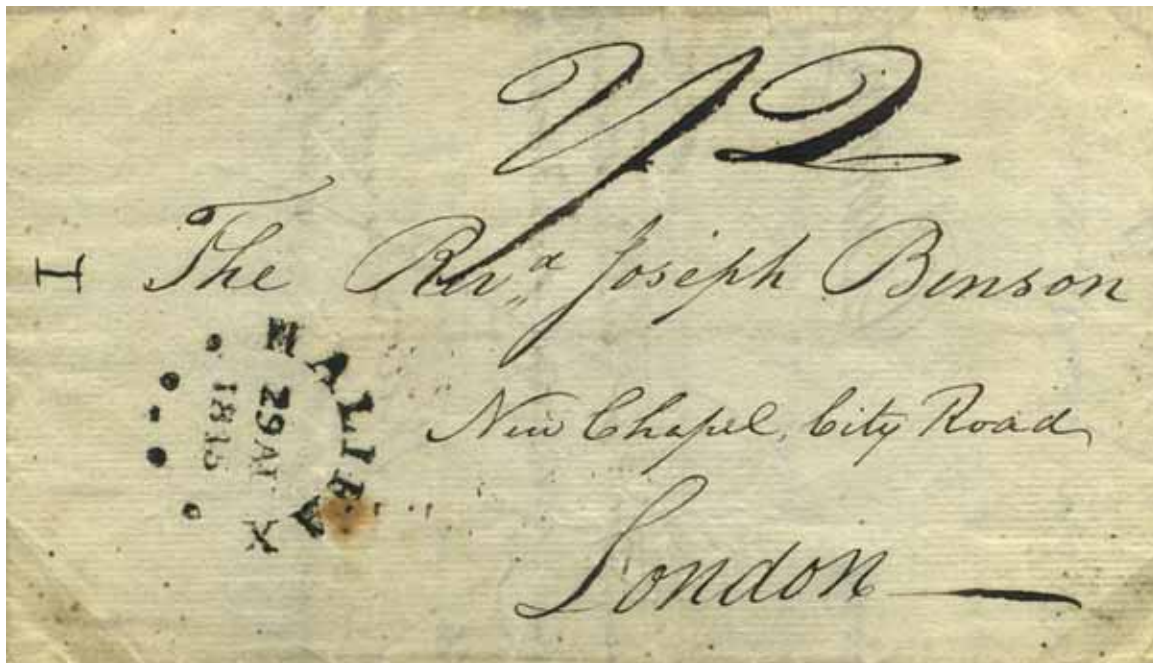 The Revd Joseph Benson
New Chapel, City Road
London
HALIFAX
29AU
1815